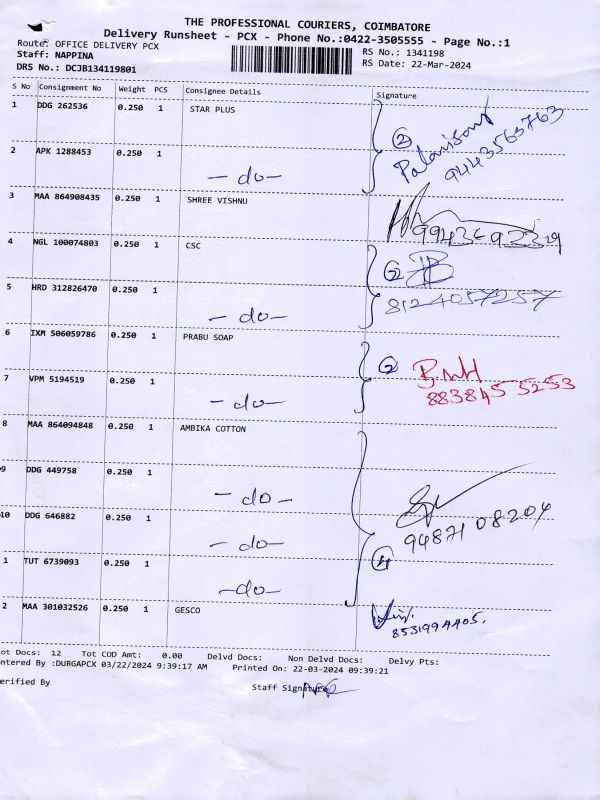 THE PROFESSIONAL COURIERS, COIMBATORE
Delivery Runsheet - PCX - Phone No.:0422-3505555 - Page No.:1
Route: OFFICE DELIVERY PCX
RS No.: 1341198
Staff: NAPPINA
RS Date: 22-Mar-2024
DRS No.: DCJB134119801
S No Consignment No Weight PCS Consignee Details Signature
1 DDG 262536 0.250 1 STAR PLUS
2 Palanisamy
9443563763
2 APK 1288453 0.250 1 - do -
3 MAA 864908435 0.250 1 SHREE VISHNU
4 NGL 100074803 0.250 1 CSC
2
5 HRD 312826470 0.250 1 - do -
8124057257
6 IXM 506059786 0.250 1 PRABU SOAP
2
883845 5253
7 VPM 5194519 0.250 1 - do -
8 MAA 864094848 0.250 1 AMBIKA COTTON
9 DDG 449758 0.250 1 - do -
94871 08204
10 DDG 646882 0.250 1 - do -
4
1 TUT 6739093 0.250 1 - do -
2 MAA 301032526 0.250 1 GESCO
8531994405.
ot Docs: 12 Tot COD Amt: 0.00 Delvd Docs: Non Delvd Docs: Delvy Pts:
ntered By :DURGAPCX 03/22/2024 9:39:17 AM Printed On: 22-03-2024 09:39:21
erified By
Staff Signature